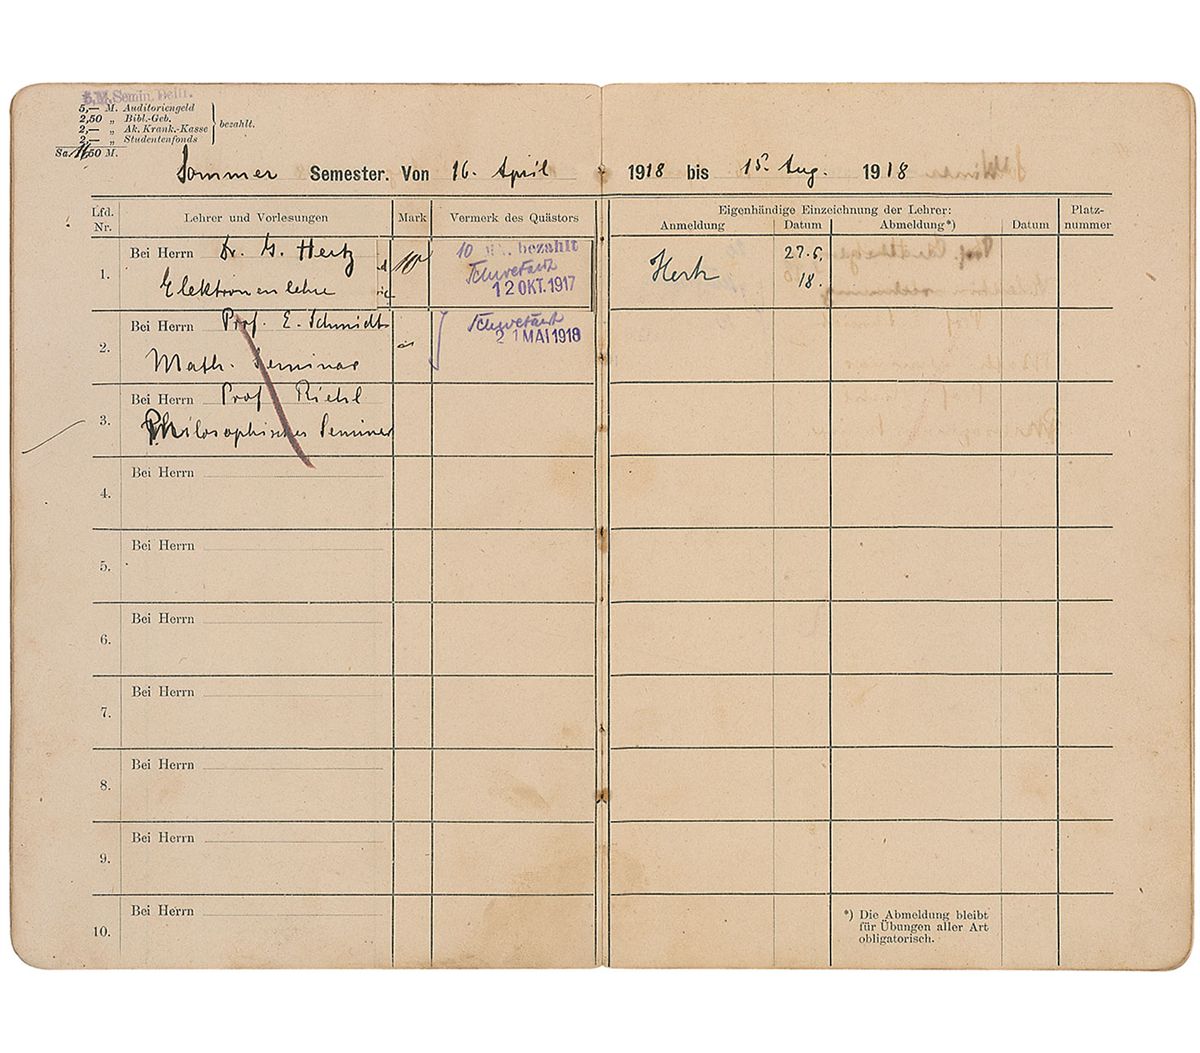 5,— M. Auditoriengeld
2,50 „ Bibl.-Geb.
2,— „ Ak. Krank.-Kasse
2,— „ Studentenfonds
bezahlt.
Sommer Semester. Von 16. April 1918 bis 15. Aug. 1918
Lfd. Nr.
Lehrer und Vorlesungen
Mark
Vermerk des Quästors
Eigenhändige Einzeichnung der Lehrer:
Anmeldung
Datum
Abmeldung*)
Datum
Platz-
nummer
1.
Bei Herrn Dr. G. Hertz
Elektronenlehre
10
10 M. bezahlt
12 OKT. 1917
Hertz
27.5.
18.
2.
Bei Herrn Prof. E. Schmidt
Math. Seminar
21 MAI 1918
3.
Bei Herrn Prof Riehl
Philosophisches Seminar
4.
Bei Herrn
5.
Bei Herrn
6.
Bei Herrn
7.
Bei Herrn
8.
Bei Herrn
9.
Bei Herrn
10.
Bei Herrn
*) Die Abmeldung bleibt
für Übungen aller Art
obligatorisch.